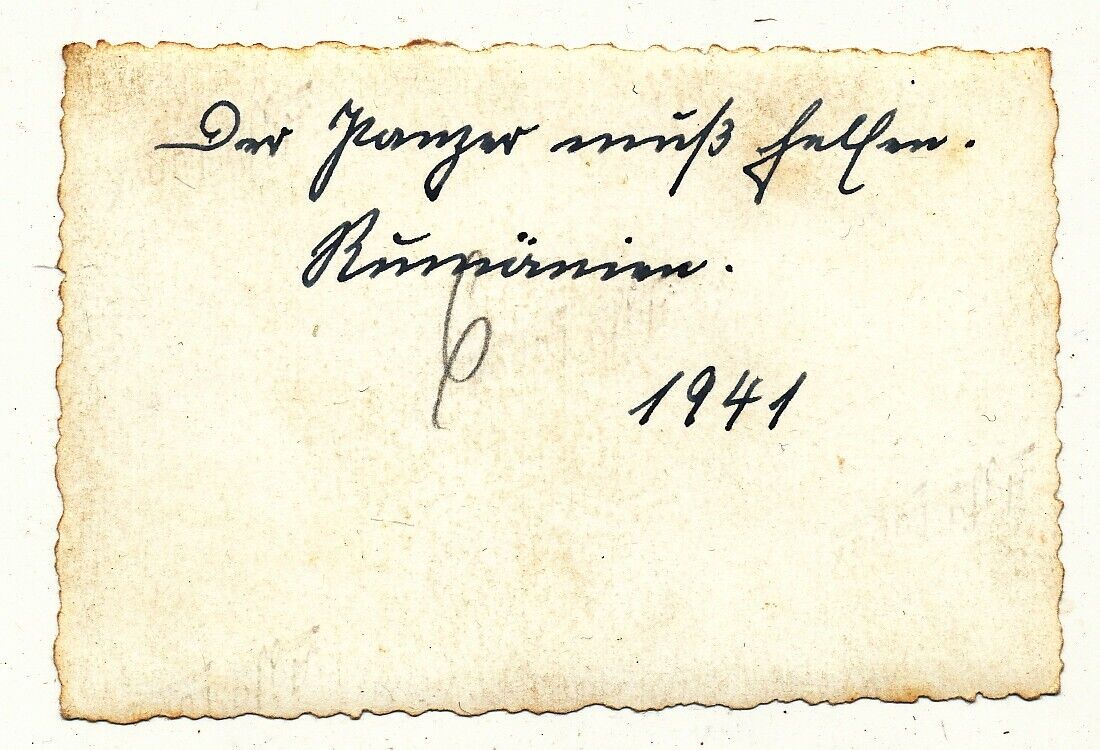 Der Panzer muß helfen.
Rumänien.
6
1941